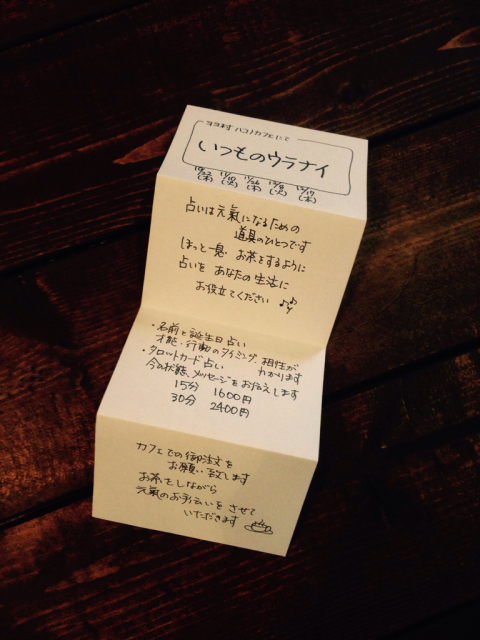 ヨヨ村 ハコノカフェにて
いつものウラナイ
10/22 11/10 11/26 12/8 12/17
(木) (火) (木) (火) (木)
占いは元氣になるための
道具のひとつです
ほっと一息 お茶をするように
占いを あなたの生活に
お役立てください ♪
・名前と誕生日占い
才能・行動のタイミング、相性が
わかります
・タロットカード占い
今の状態、メッセージをお伝えします
15分 1600円
30分 2400円
カフェでの御注文を
お願い致します
お茶をしながら
元氣のお手伝いを させて
いただきます